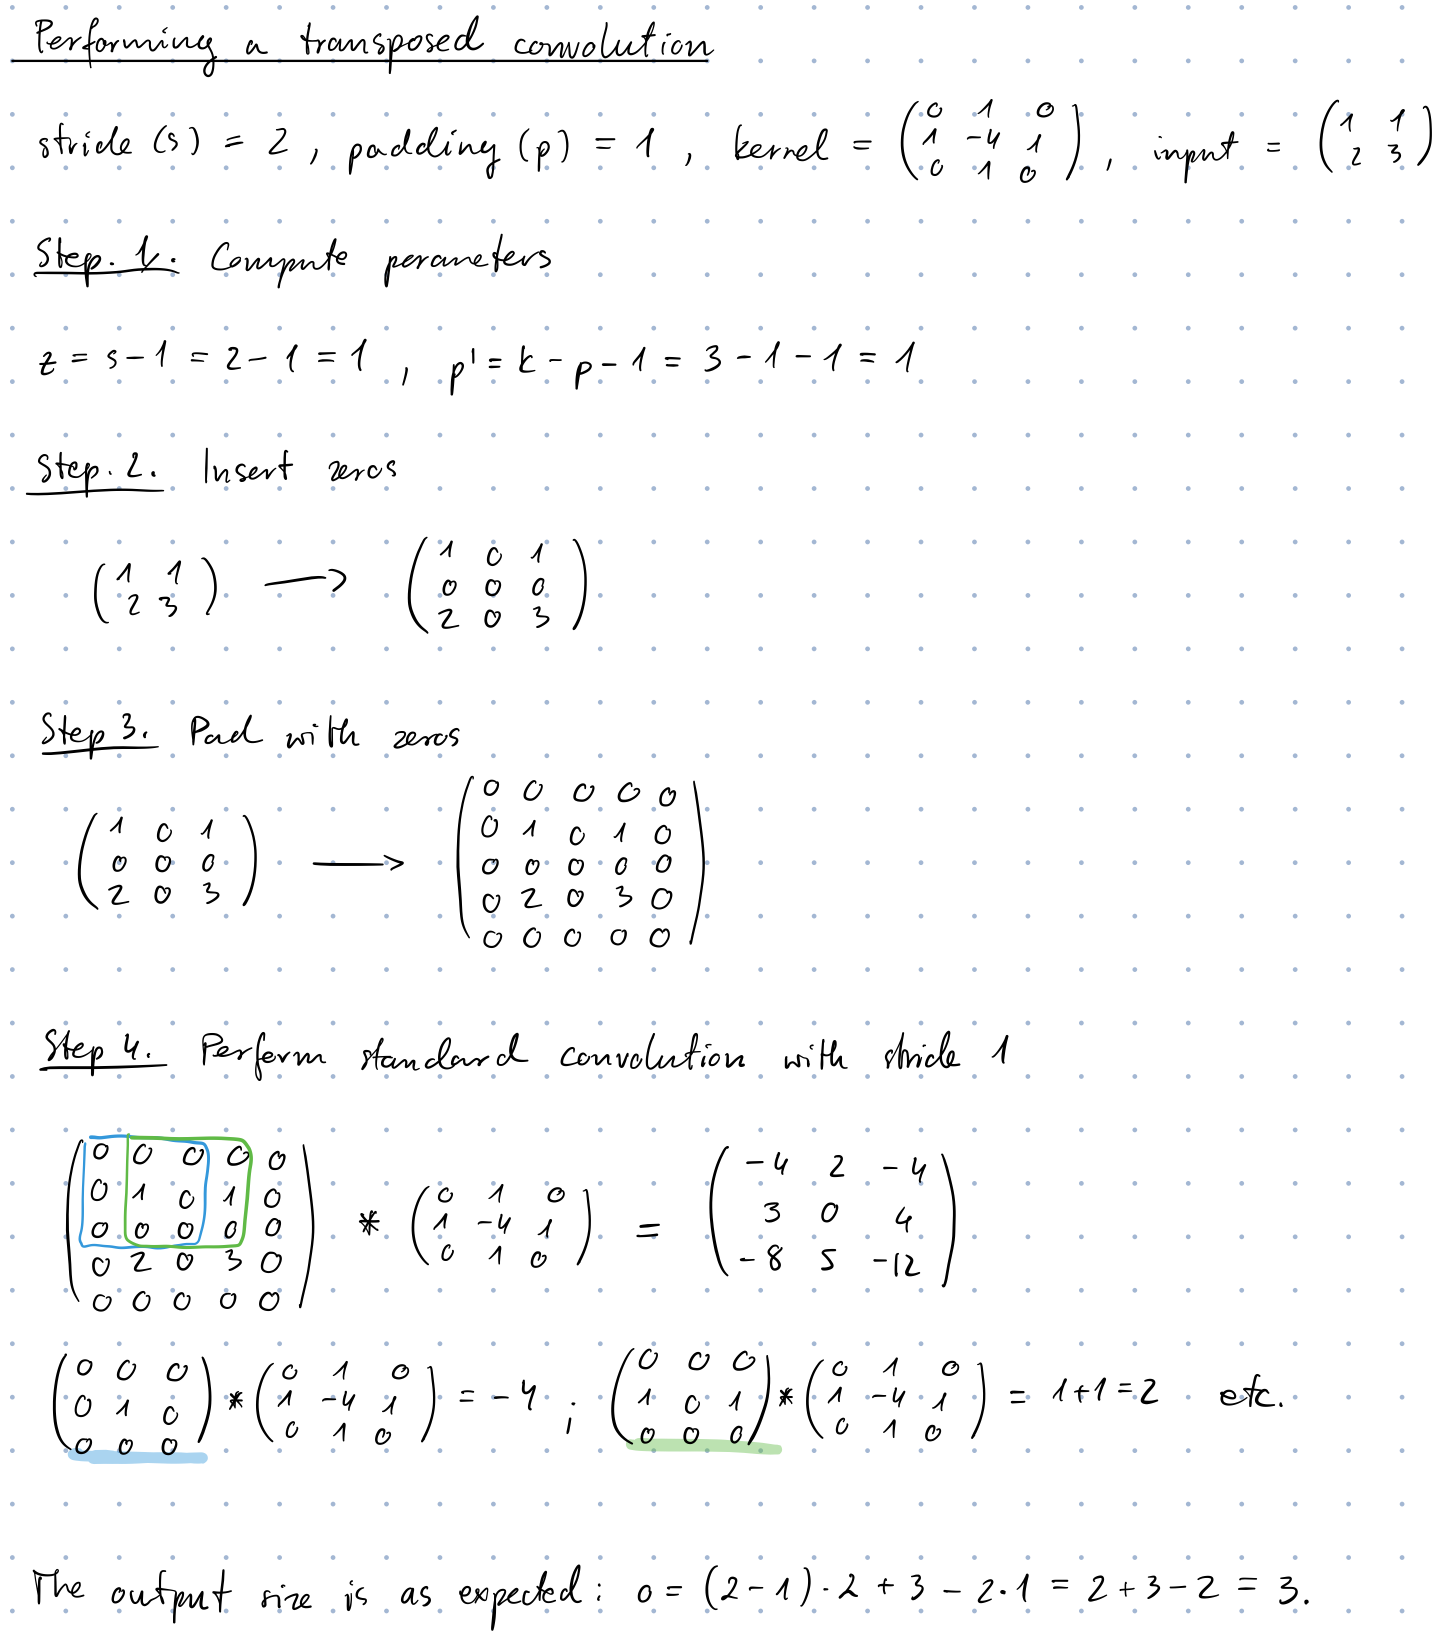 Performing a transposed convolution
stride (s) = 2 , padding (p) = 1 , kernel = (0 1 0 / 1 -4 1 / 0 1 0) , input = (1 1 / 2 3)
Step. 1. Compute parameters
z = s - 1 = 2 - 1 = 1 , p' = k - p - 1 = 3 - 1 - 1 = 1
Step. 2. Insert zeros
(1 1 / 2 3) → (1 0 1 / 0 0 0 / 2 0 3)
Step 3. Pad with zeros
(1 0 1 / 0 0 0 / 2 0 3) → (0 0 0 0 0 / 0 1 0 1 0 / 0 0 0 0 0 / 0 2 0 3 0 / 0 0 0 0 0)
Step 4. Perform standard convolution with stride 1
(0 0 0 0 0 / 0 1 0 1 0 / 0 0 0 0 0 / 0 2 0 3 0 / 0 0 0 0 0) * (0 1 0 / 1 -4 1 / 0 1 0) = (-4 2 -4 / 3 0 4 / -8 5 -12)
(0 0 0 / 0 1 0 / 0 0 0) * (0 1 0 / 1 -4 1 / 0 1 0) = -4 ; (0 0 0 / 1 0 1 / 0 0 0) * (0 1 0 / 1 -4 1 / 0 1 0) = 1+1 = 2 etc.
The output size is as expected: o = (2-1)·2 + 3 - 2·1 = 2+3-2 = 3.